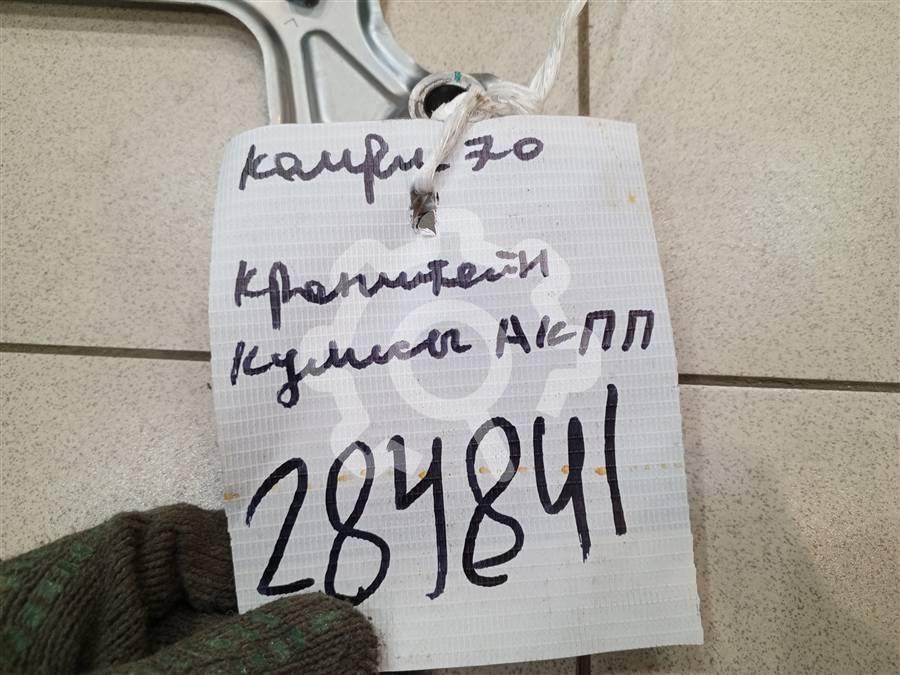 Камри 70
Кронштейн
Кулисы АКПП
284841